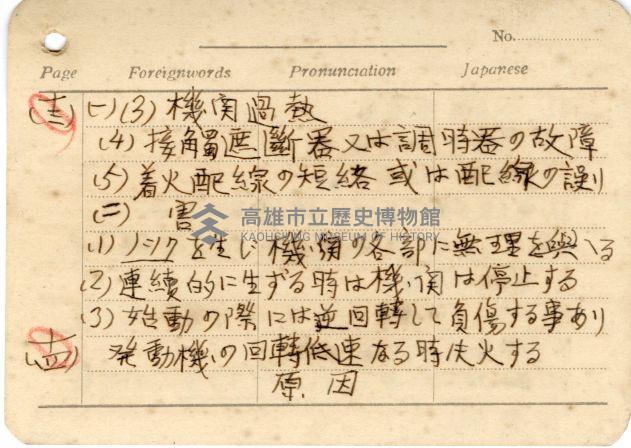 No.
Page Foreignwords Pronunciation Japanese
(十三) (一) (3) 機関過熱
(4) 接觸遮斷器又は調時器の故障
(5) 着火配線の短絡或は配線の誤り
(二) 害
高雄市立歷史博物館
KAOHSIUNG MUSEUM OF HISTORY
(1) ノックを生じ機関の各部に無理を與へる
(2) 連續的に生ずる時は機関は停止する
(3) 始動の際には逆回轉して負傷する事あり
(十四) 発動機の回轉低速なる時失火する
原因